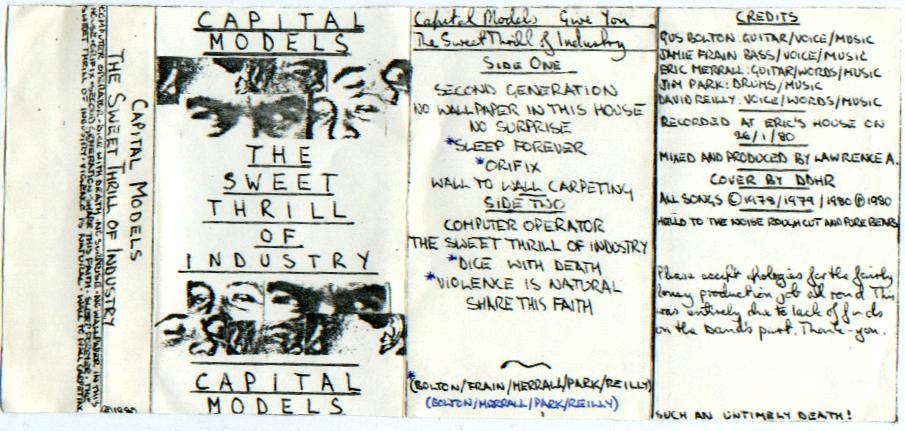 CAPITAL MODELS
THE SWEET THRILL OF INDUSTRY
COMPUTER OPERATOR · DICE WITH DEATH · NO SURPRISE · NO WALLPAPER IN THIS
HOUSE · ORIFIX · SECOND GENERATION · SHARE THIS FAITH · SLEEP FOREVER · THE
SWEET THRILL OF INDUSTRY · VIOLENCE IS NATURAL · WALL TO WALL CARPETING
℗1980
CAPITAL
MODELS
THE
SWEET
THRILL
OF
INDUSTRY
CAPITAL
MODELS
Capital Models Give You
The Sweet Thrill of Industry
SIDE ONE
SECOND GENERATION
NO WALLPAPER IN THIS HOUSE
NO SURPRISE
*SLEEP FOREVER
*ORIFIX
WALL TO WALL CARPETING
SIDE TWO
COMPUTER OPERATOR
THE SWEET THRILL OF INDUSTRY
*DICE WITH DEATH
*VIOLENCE IS NATURAL
SHARE THIS FAITH
*(BOLTON/FRAIN/MERRALL/PARK/REILLY)
(BOLTON/MERRALL/PARK/REILLY)
CREDITS
GUS BOLTON: GUITAR/VOICE/MUSIC
JAMIE FRAIN BASS/VOICE/MUSIC
ERIC MERRALL: GUITAR/WORDS/MUSIC
JIM PARK: DRUMS/MUSIC
DAVID REILLY: VOICE/WORDS/MUSIC
RECORDED AT ERIC'S HOUSE ON
26/1/80
MIXED AND PRODUCED BY LAWRENCE A.
COVER BY DDHR
ALL SONGS © 1978/1979/1980 ℗ 1980
HELLO TO THE NOISE ROUGH CUT AND PORE BEARS
Please accept apologies for the fairly
lousy production job all round. This
was entirely due to lack of funds
on the band's part. Thank-you.
SUCH AN UNTIMELY DEATH!